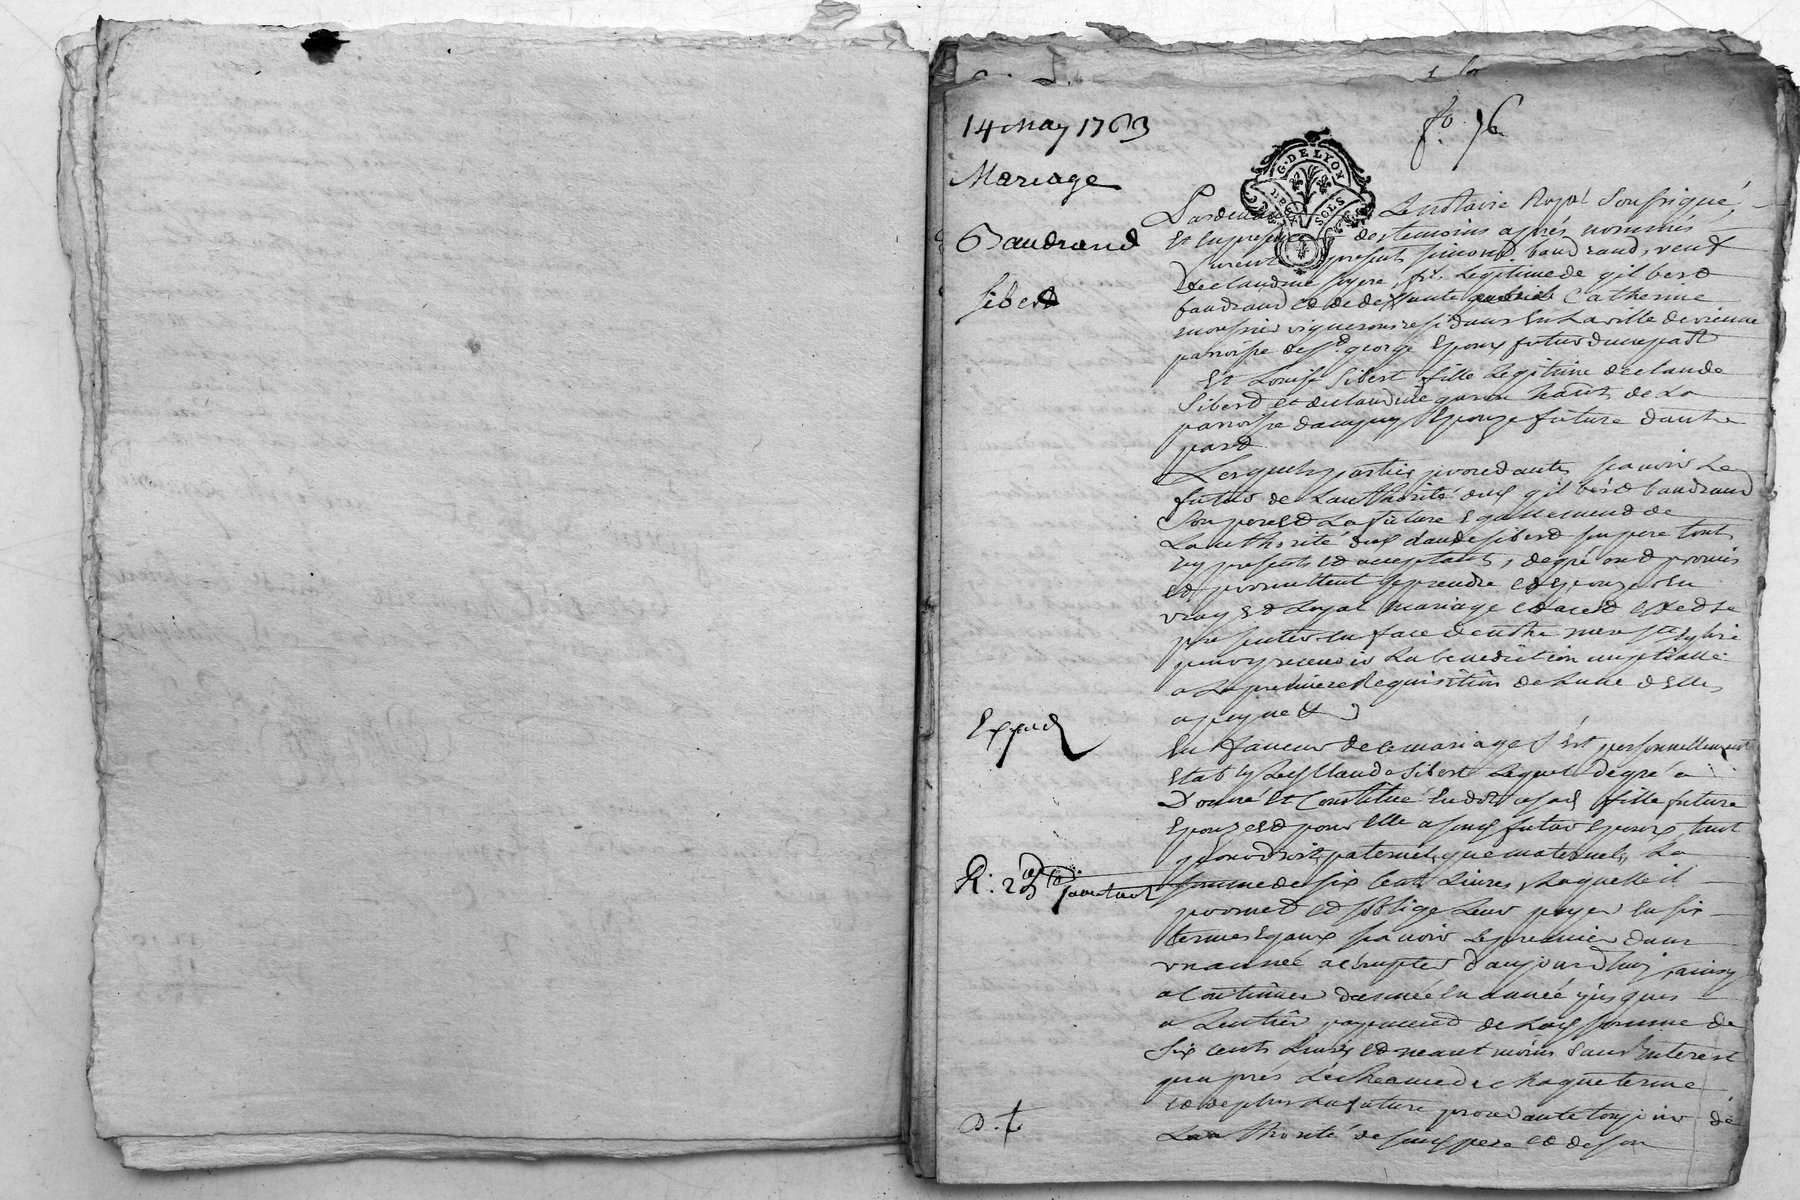 14 May 1763
fo. 76
Mariage
Baudrand
Sibert
G. DE LYON
DEUX SOLS
Pardevant Le notaire Royal Soussigné
Et en presence des temoins aprés nommés
furent presents simond baudrand, veuf
De claudine fils Legitime de gilbert
baudrand et de defunte Catherine
vigneron residant En La ville de vienne
parroisse de St. george Epoux futur dune part
Et Louise Sibert fille Legitime de claude
Sibert et de claudine haut de La
parroisse dampuy Epouze future dautre
part
Lesquels parties procedantes scavoir Le
futur de Lauthorité dud. gilbert baudrand
Son pere Et La future Egallement de
Lauthorité dud. claude sibert son pere tous
icy presents et acceptants, de gré ont promis
et promettent se prendre et Epouzer En
vray Et Loyal mariage et a cet effet de se
presenter En face de notre mere ste Eglize
pour y recevoir La benediction nuptialle
a La premiere Requisition de Lune d'Elles
a peyne &
Expedié
En faveur de ce mariage s'est personnellement
Etably Led. Claude Sibert Lequel de gré a
Donné Et Constitué En dot a sad. fille future
Epouze et pour Elle a sond. futur Epoux, tant
pour droits paternels que maternels La
somme de six Cents Livres Laquelle il
promet et s'oblige Leur payer En six
termes Egaux scavoir Le premier dans
une année a compter d'aujourdhuy, ainsy
a Continuer dannée En année jusques
a Lentier payement de Lad. somme de
Six cents Livres et neant moins sans interest
qu'aprés L'écheance de chaque terme
et de plus La future procedante toujours de
Lauthorité de sond. pere et de son